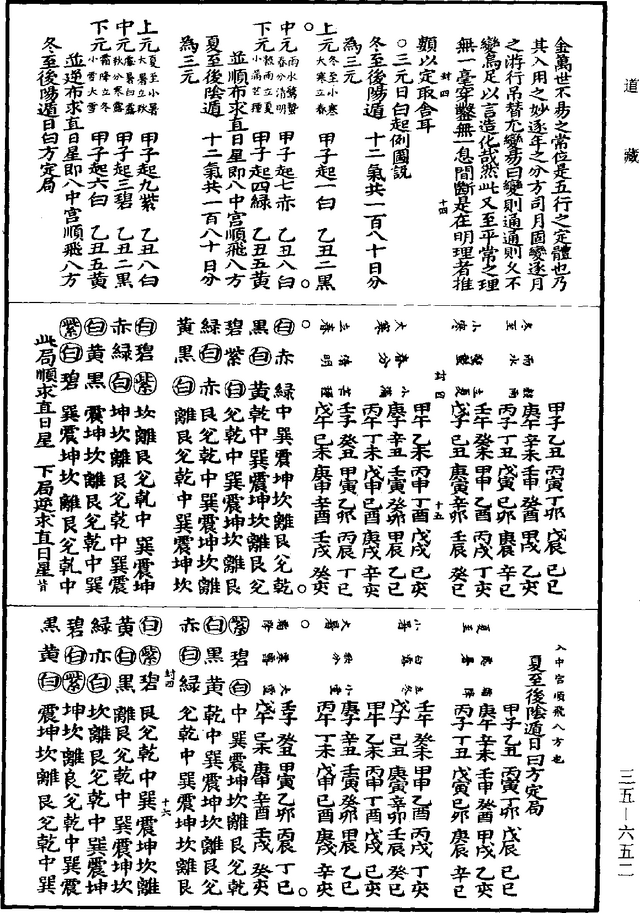 道藏
金萬世不易之常位是五行之定體也乃
其入用之妙逐年之分方司月固變逐月
之游行吊替尤變易曰變則通通則久不
變烏足以言造化哉然此又至平常之理
無一毫穿鑿無一息間斷是在明理者推
類以定取舍耳
封四
十四
○三元日白起例圖説
冬至後陽遁 十二氣共一百八十日分
為三元
上元冬至小寒大寒立春 甲子起一白 乙丑二黑
中元雨水驚蟄春分清明 甲子起七赤 乙丑八白
下元穀雨立夏小滿芒種 甲子起四綠 乙丑五黃
並順布求直日星即八中宮順飛八方
夏至後陰遁 十二氣共一百八十日分
為三元
上元夏至小暑大暑立秋 甲子起九紫 乙丑八白
中元處暑白露秋分寒露 甲子起三碧 乙丑二黑
下元霜降立冬小雪大雪 甲子起六白 乙丑五黃
並逆布求直日星即八中宮順飛八方
冬至後陽遁日白方定局
甲子乙丑 丙寅丁卯 戊辰 己巳
庚午辛未 壬申 癸酉 甲戌 乙亥
冬至 雨水 穀雨 丙子丁丑 戊寅己卯 庚辰 辛巳
壬午癸未 甲申乙酉 丙戌 丁亥
小寒 驚蟄 立夏 戊子己丑 庚寅辛卯 壬辰 癸巳
封四
十五
甲午乙未 丙申丁酉 戊戌 己亥
庚子辛丑 壬寅癸卯 甲辰 乙巳
大寒 春分 小滿 丙午丁未 戊申己酉 庚戌 辛亥
壬子癸丑 甲寅乙卯 丙辰 丁巳
立春 清明 芒種 戊午己未 庚申辛酉 壬戌 癸亥
白 赤 綠 中巽震坤坎離艮兌乾
黑 白 黃 乾中巽震坤坎離艮兌
碧 紫 白 兌乾中巽震坤坎離艮
綠 白 赤 艮兌乾中巽震坤坎離
黃 黑 白 離艮兌乾中巽震坤坎
白 碧 紫 坎離艮兌乾中巽震坤
赤 綠 白 坤坎離艮兌乾中巽震
白 黃 黑 震坤坎離艮兌乾中巽
紫 白 碧 巽震坤坎離艮兌乾中
此局順求直日星 下局逆求直日星皆
入中宮順飛八方也
夏至後陰遁日白方定局
甲子乙丑 丙寅丁卯 戊辰 己巳
庚午辛未 壬申 癸酉 甲戌 乙亥
夏至 處暑 霜降 丙子丁丑 戊寅己卯 庚辰 辛巳
壬午 癸未 甲申乙酉 丙戌 丁亥
小暑 白露 立冬 戊子己丑 庚寅辛卯 壬辰 癸巳
甲午乙未 丙申丁酉 戊戌 己亥
庚子辛丑 壬寅癸卯 甲辰 乙巳
大暑 秋分 小雪 丙午丁未 戊申己酉 庚戌 辛亥
壬子 癸丑 甲寅乙卯 丙辰 丁巳
大雪 戊午己未 庚申辛酉 壬戌 癸亥
紫 碧 白 中巽震坤坎離艮兌乾
白 黑 黃 乾中巽震坤坎離艮兌
赤 白 綠 兌乾中巽震坤坎離艮
封四
十六
白 紫 碧 艮兌乾中巽震坤坎離
黃 白 黑 離艮兌乾中巽震坤坎
綠 赤 白 坎離艮兌乾中巽震坤
碧 白 紫 坤坎離艮兌乾中巽震
黑 黃 白 震坤坎離艮兌乾中巽
三五—六五二